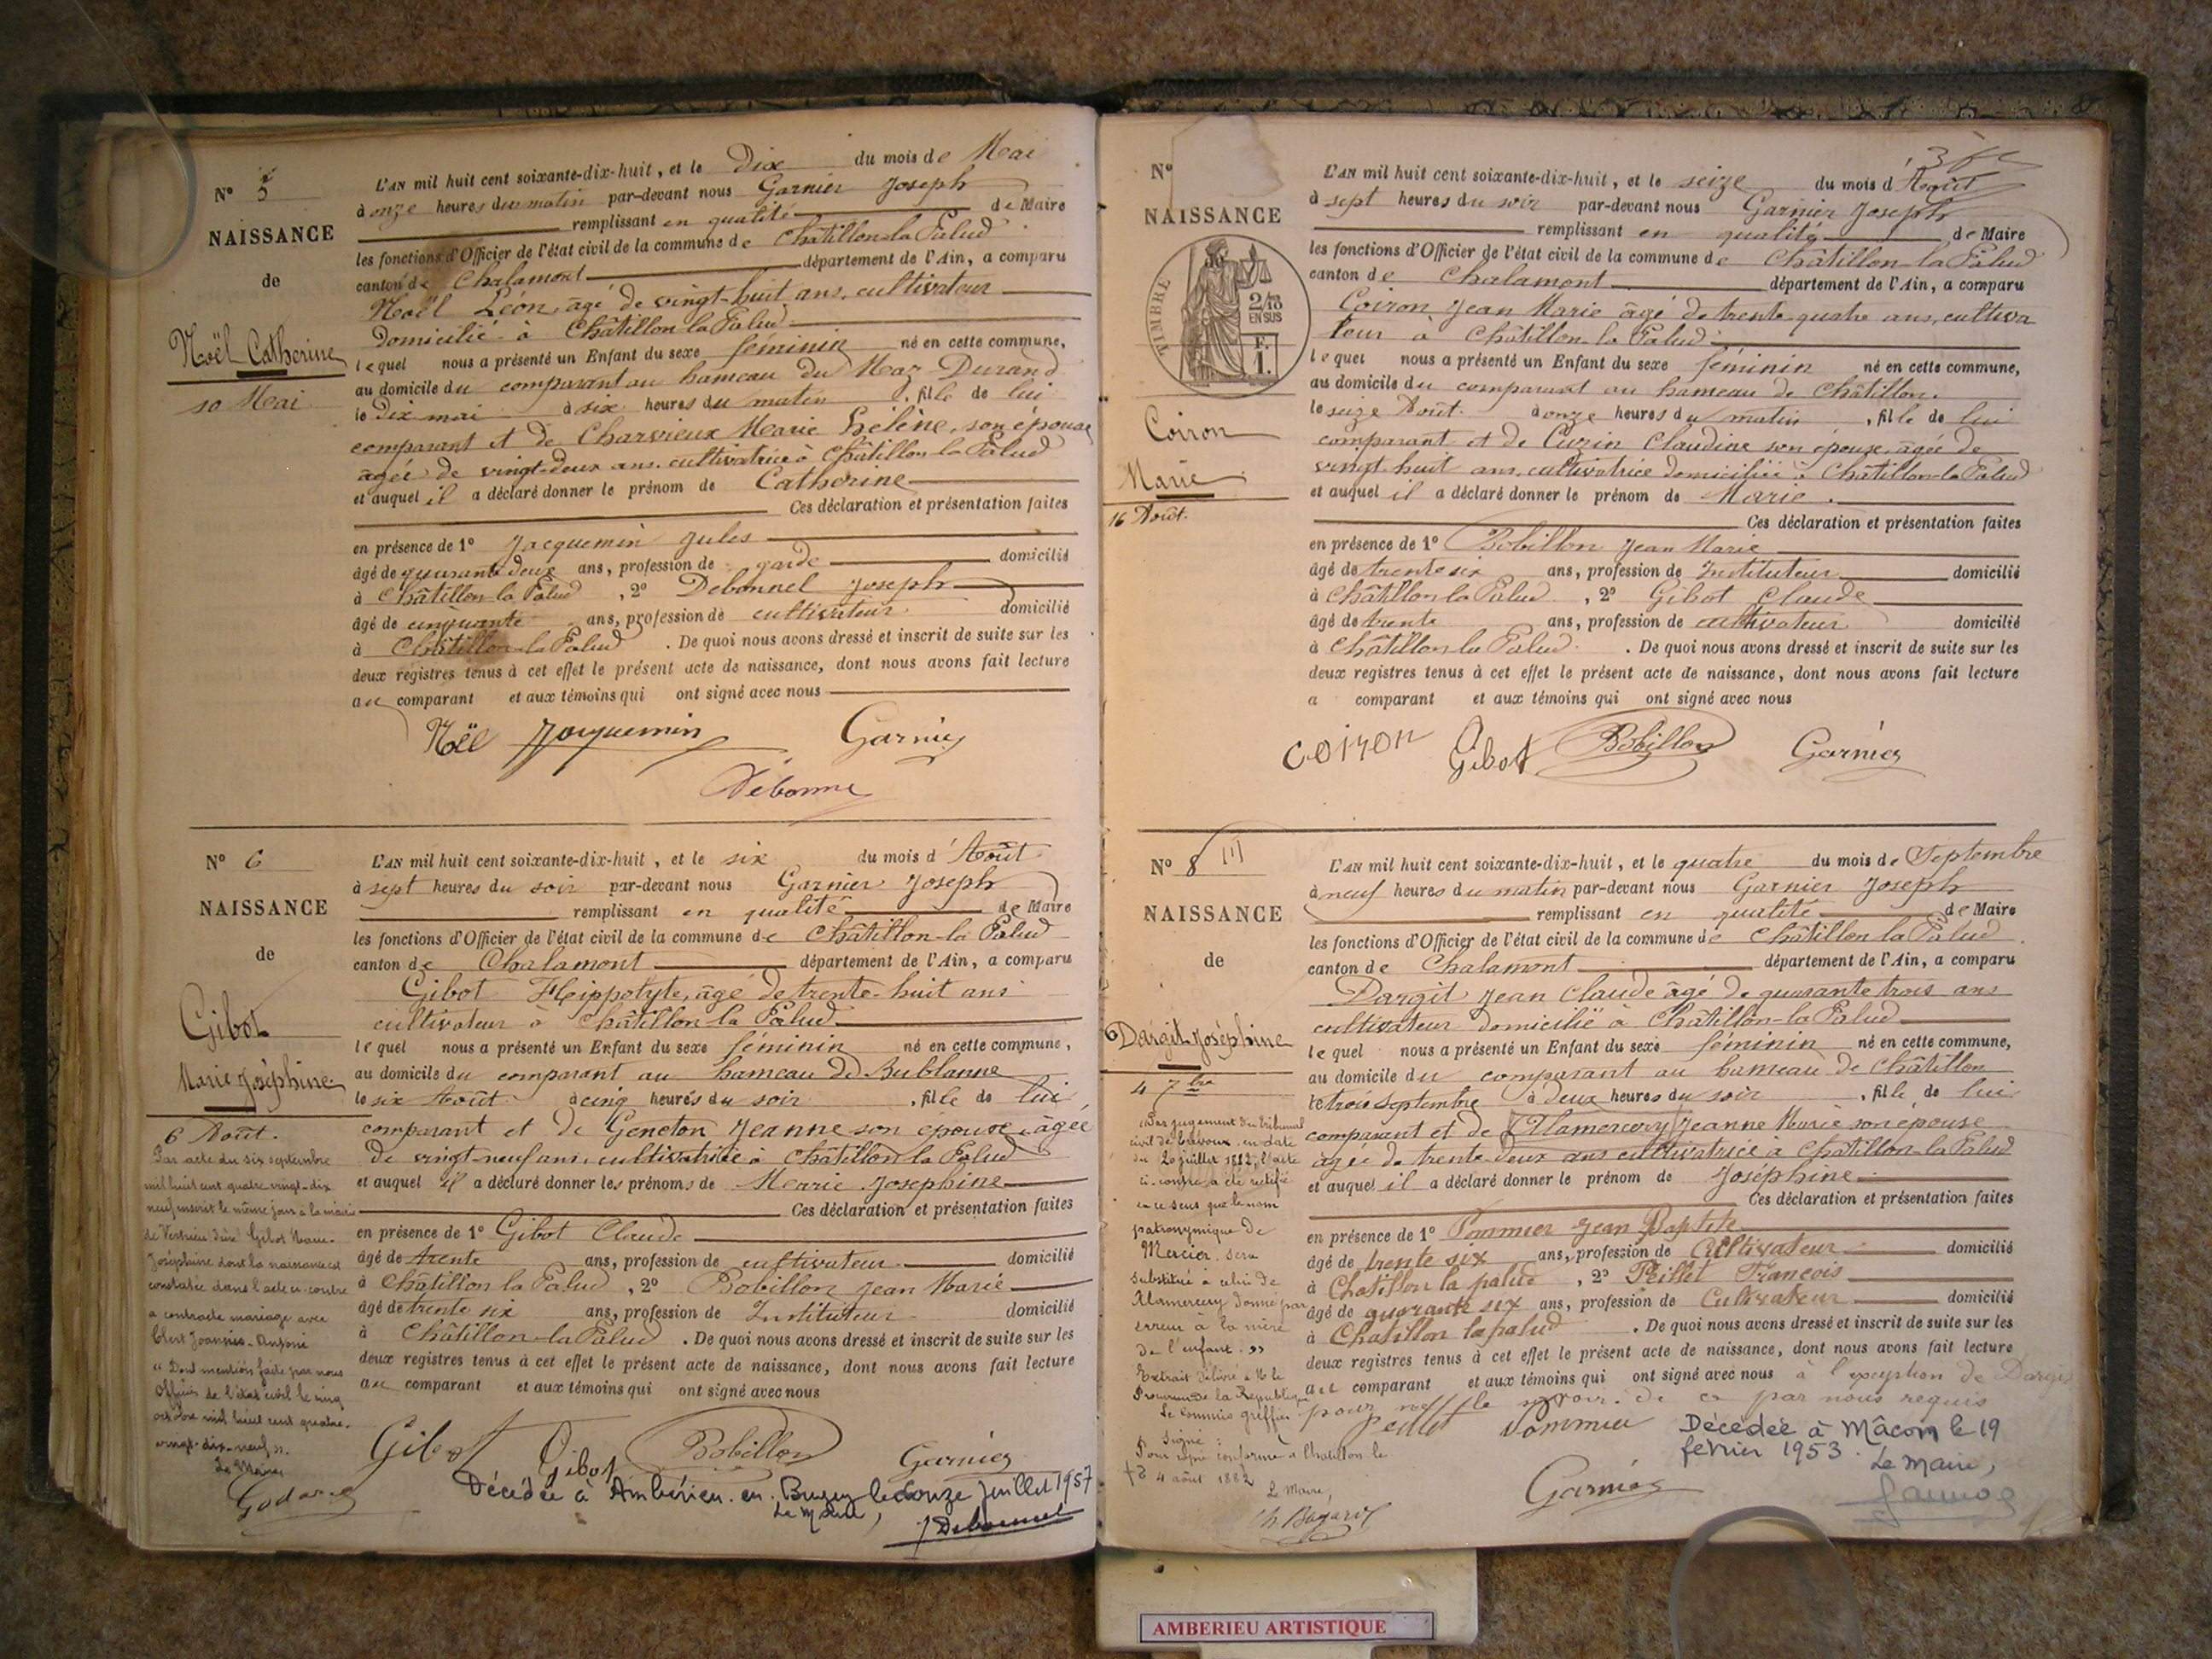 N° 5
NAISSANCE
de
Noël Catherine
10 Mai
L'AN mil huit cent soixante-dix-huit, et le Dix du mois de Mai
à onze heures du matin par-devant nous Garnier Joseph
remplissant en qualité de Maire
les fonctions d'Officier de l'état civil de la commune de Châtillon-la-Palud
canton de Chalamont département de l'Ain, a comparu
Noël Léon, âgé de vingt-huit ans, cultivateur
domicilié à Châtillon-la-Palud
lequel nous a présenté un Enfant du sexe féminin né en cette commune,
au domicile du comparant au hameau du Maz-Durand
le Dix mai à six heures du matin, fille de lui
comparant et de Charvieux Marie Hélène, son épouse
âgée de vingt-deux ans, cultivatrice à Châtillon-la-Palud
et auquel il a déclaré donner le prénom de Catherine
Ces déclaration et présentation faites
en présence de 1° Jacquemin Jules
âgé de quarante deux ans, profession de garde domicilié
à Châtillon-la-Palud, 2° Debonnel Joseph
âgé de cinquante ans, profession de cultivateur domicilié
à Châtillon-la-Palud. De quoi nous avons dressé et inscrit de suite sur les
deux registres tenus à cet effet le présent acte de naissance, dont nous avons fait lecture
au comparant et aux témoins qui ont signé avec nous
Noël Jacquemin Garnier
N° 6
NAISSANCE
de
Gibot
Marie Joséphine
6 Août.
Par acte du six septembre
mil huit cent quatre vingt-dix
neuf inscrit le même jour à la mairie
Gibot Marie
Joséphine dont la naissance est
constatée dans l'acte ci-contre
a contracté mariage avec
Joannis
"Dont mention faite par nous
Officier de l'état civil le cinq
octobre mil huit cent quatre-
vingt-dix-neuf".
Le Maire
L'AN mil huit cent soixante-dix-huit, et le six du mois d'Août
à sept heures du soir par-devant nous Garnier Joseph
remplissant en qualité de Maire
les fonctions d'Officier de l'état civil de la commune de Châtillon-la-Palud
canton de Chalamont département de l'Ain, a comparu
Gibot Hippolyte, âgé de trente-huit ans
cultivateur à Châtillon-la-Palud
lequel nous a présenté un Enfant du sexe féminin né en cette commune,
au domicile du comparant au hameau de Bublanne
le six Août à cinq heures du soir, fille de lui
comparant et de Geneton Jeanne son épouse, âgée
de vingt-neuf ans, cultivatrice à Châtillon-la-Palud
et auquel il a déclaré donner les prénoms de Marie Joséphine
Ces déclaration et présentation faites
en présence de 1° Gibot Claude
âgé de trente ans, profession de cultivateur domicilié
à Châtillon-la-Palud, 2° Bobillon Jean Marie
âgé de trente six ans, profession de Instituteur domicilié
à Châtillon-la-Palud. De quoi nous avons dressé et inscrit de suite sur les
deux registres tenus à cet effet le présent acte de naissance, dont nous avons fait lecture
au comparant et aux témoins qui ont signé avec nous
Gibot Gibot Bobillon Garnier
Décédée à Ambérieu-en-Bugey le onze Juillet 1957
Le Maire,
N°
NAISSANCE
TIMBRE
2/10 EN SUS
F. 1.
Coiron
Marie
16 Août.
L'AN mil huit cent soixante-dix-huit, et le seize du mois d'Août
à sept heures du soir par-devant nous Garnier Joseph
remplissant en qualité de Maire
les fonctions d'Officier de l'état civil de la commune de Châtillon-la-Palud
canton de Chalamont département de l'Ain, a comparu
Coiron Jean Marie âgé de trente-quatre ans, cultiva
teur à Châtillon-la-Palud
lequel nous a présenté un Enfant du sexe féminin né en cette commune,
au domicile du comparant au hameau de Châtillon.
le seize Août à onze heures du matin, fille de lui
comparant et de Cuzin Claudine son épouse, âgée de
vingt-huit ans, cultivatrice domiciliée à Châtillon-la-Palud
et auquel il a déclaré donner le prénom de Marie.
Ces déclaration et présentation faites
en présence de 1° Bobillon Jean Marie
âgé de trente six ans, profession de Instituteur domicilié
à Châtillon-la-Palud, 2° Gibot Claude
âgé de trente ans, profession de cultivateur domicilié
à Châtillon-la-Palud. De quoi nous avons dressé et inscrit de suite sur les
deux registres tenus à cet effet le présent acte de naissance, dont nous avons fait lecture
a comparant et aux témoins qui ont signé avec nous
Coiron Gibot Bobillon Garnier
N° 8
NAISSANCE
de
Dargit Joséphine
4 7bre
Par jugement du tribunal
civil de Trévoux, en date
du 20 juillet 1882, l'acte
ci-contre a été rectifié
en ce sens que le nom
patronymique de
Mercier sera
substitué à celui de
Alamercery donné par
erreur à la mère
de l'enfant."
Extrait délivré à M. le
Procureur de la République
Le Commis greffier
Signé:
Pour copie conforme à Chatillon le
4 août 1882
Le Maire,
L'AN mil huit cent soixante-dix-huit, et le quatre du mois de Septembre
à neuf heures du matin par-devant nous Garnier Joseph
remplissant en qualité de Maire
les fonctions d'Officier de l'état civil de la commune de Châtillon la Palud
canton de Chalamont département de l'Ain, a comparu
Dargit Jean Claude âgé de quarante trois ans
cultivateur domicilié à Châtillon-la-Palud
lequel nous a présenté un Enfant du sexe féminin né en cette commune,
au domicile du comparant au hameau de Châtillon
le trois septembre à deux heures du soir, fille de lui
comparant et de Alamercery Jeanne Marie son épouse
âgée de trente-deux ans cultivatrice à Châtillon-la-Palud
et auquel il a déclaré donner le prénom de Joséphine
Ces déclaration et présentation faites
en présence de 1° Pommier Jean Baptiste
âgé de trente six ans, profession de Cultivateur domicilié
à Chatillon la palud, 2° Peillet François
âgé de quarante six ans, profession de Cultivateur domicilié
à Chatillon la palud. De quoi nous avons dressé et inscrit de suite sur les
deux registres tenus à cet effet le présent acte de naissance, dont nous avons fait lecture
au comparant et aux témoins qui ont signé avec nous à l'exception de Dargit
pour ne le savoir de ce par nous requis
Peillet Pommier
Décédée à Mâcon le 19
février 1953. Le Maire,
Garnier
AMBERIEU ARTISTIQUE